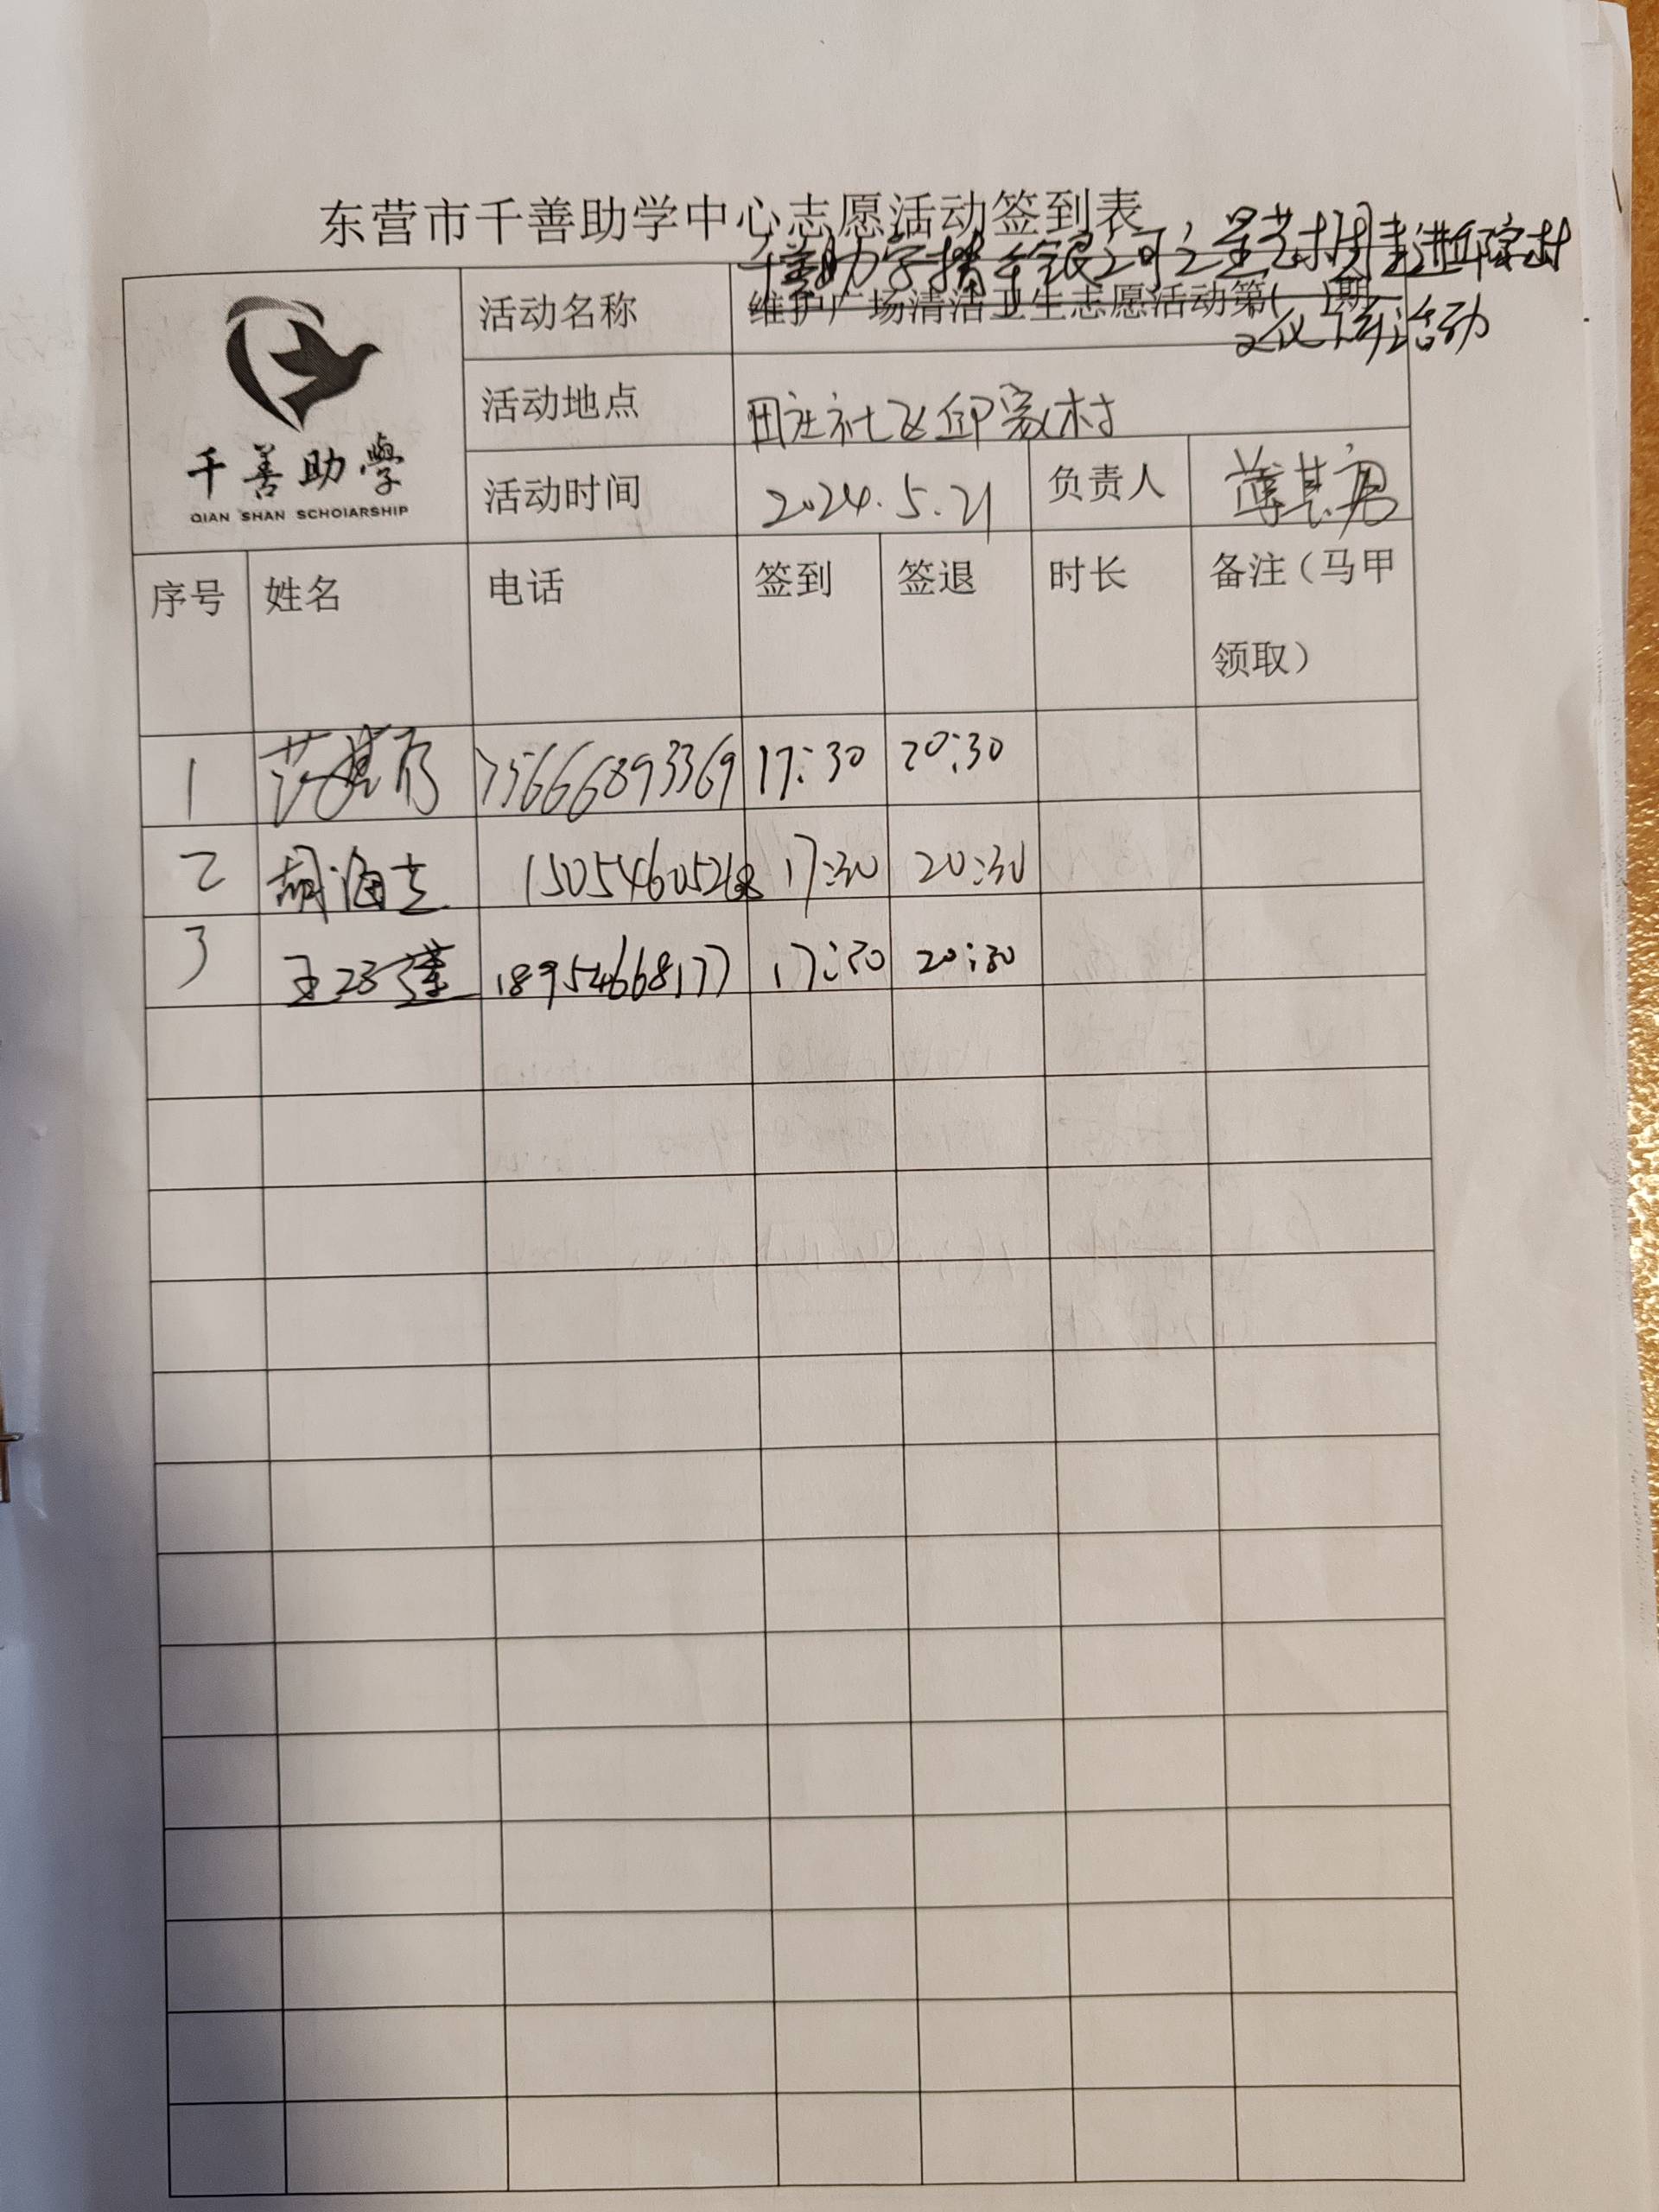 东营市千善助学中心志愿活动签到表
千善助学携手银河之星艺术团走进邱家村
活动名称 维护广场清洁卫生志愿活动第( )期
文化 活动
活动地点 田庄社区邱家村
千善助學
QIAN SHAN SCHOIARSHIP
活动时间 2024.5.21 负责人
序号 姓名 电话 签到 签退 时长 备注（马甲
领取）
1 15666893369 17:30 20:30
2 胡海 15054605268 17:30 20:30
3 王 18954668177 17:30 20:30